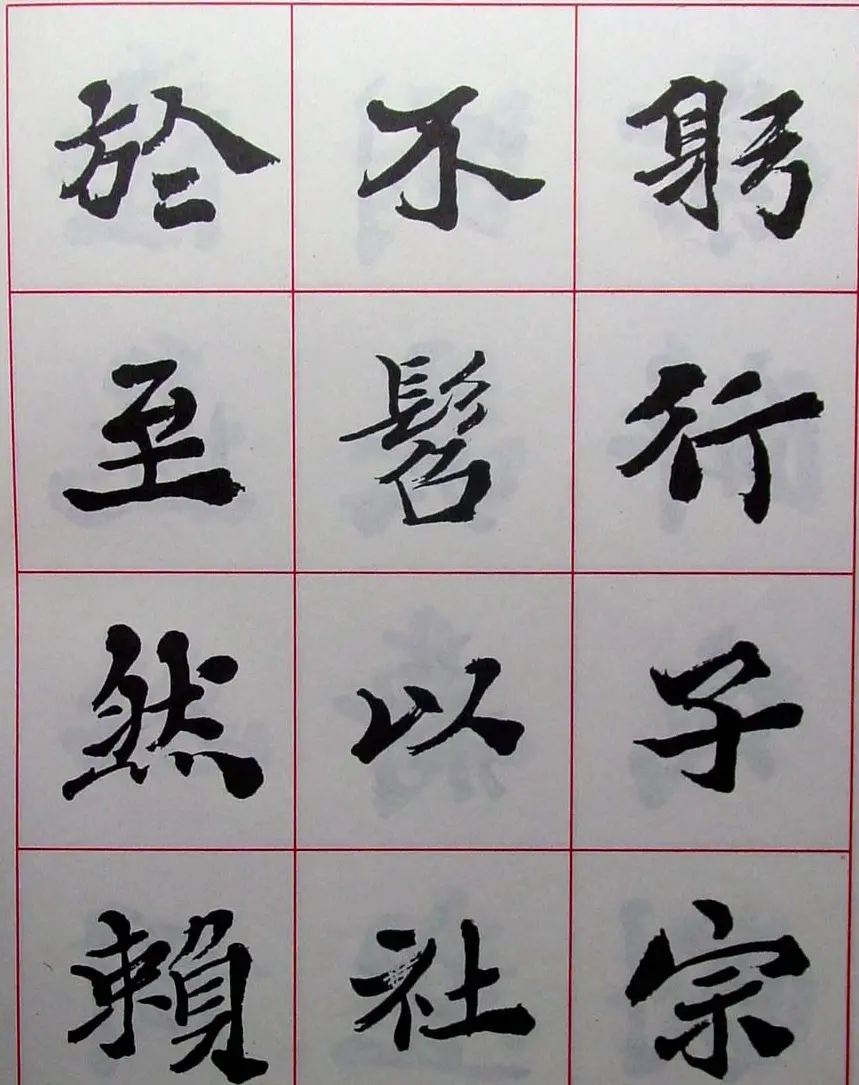 躬行子宗
不髫以社
於至然賴